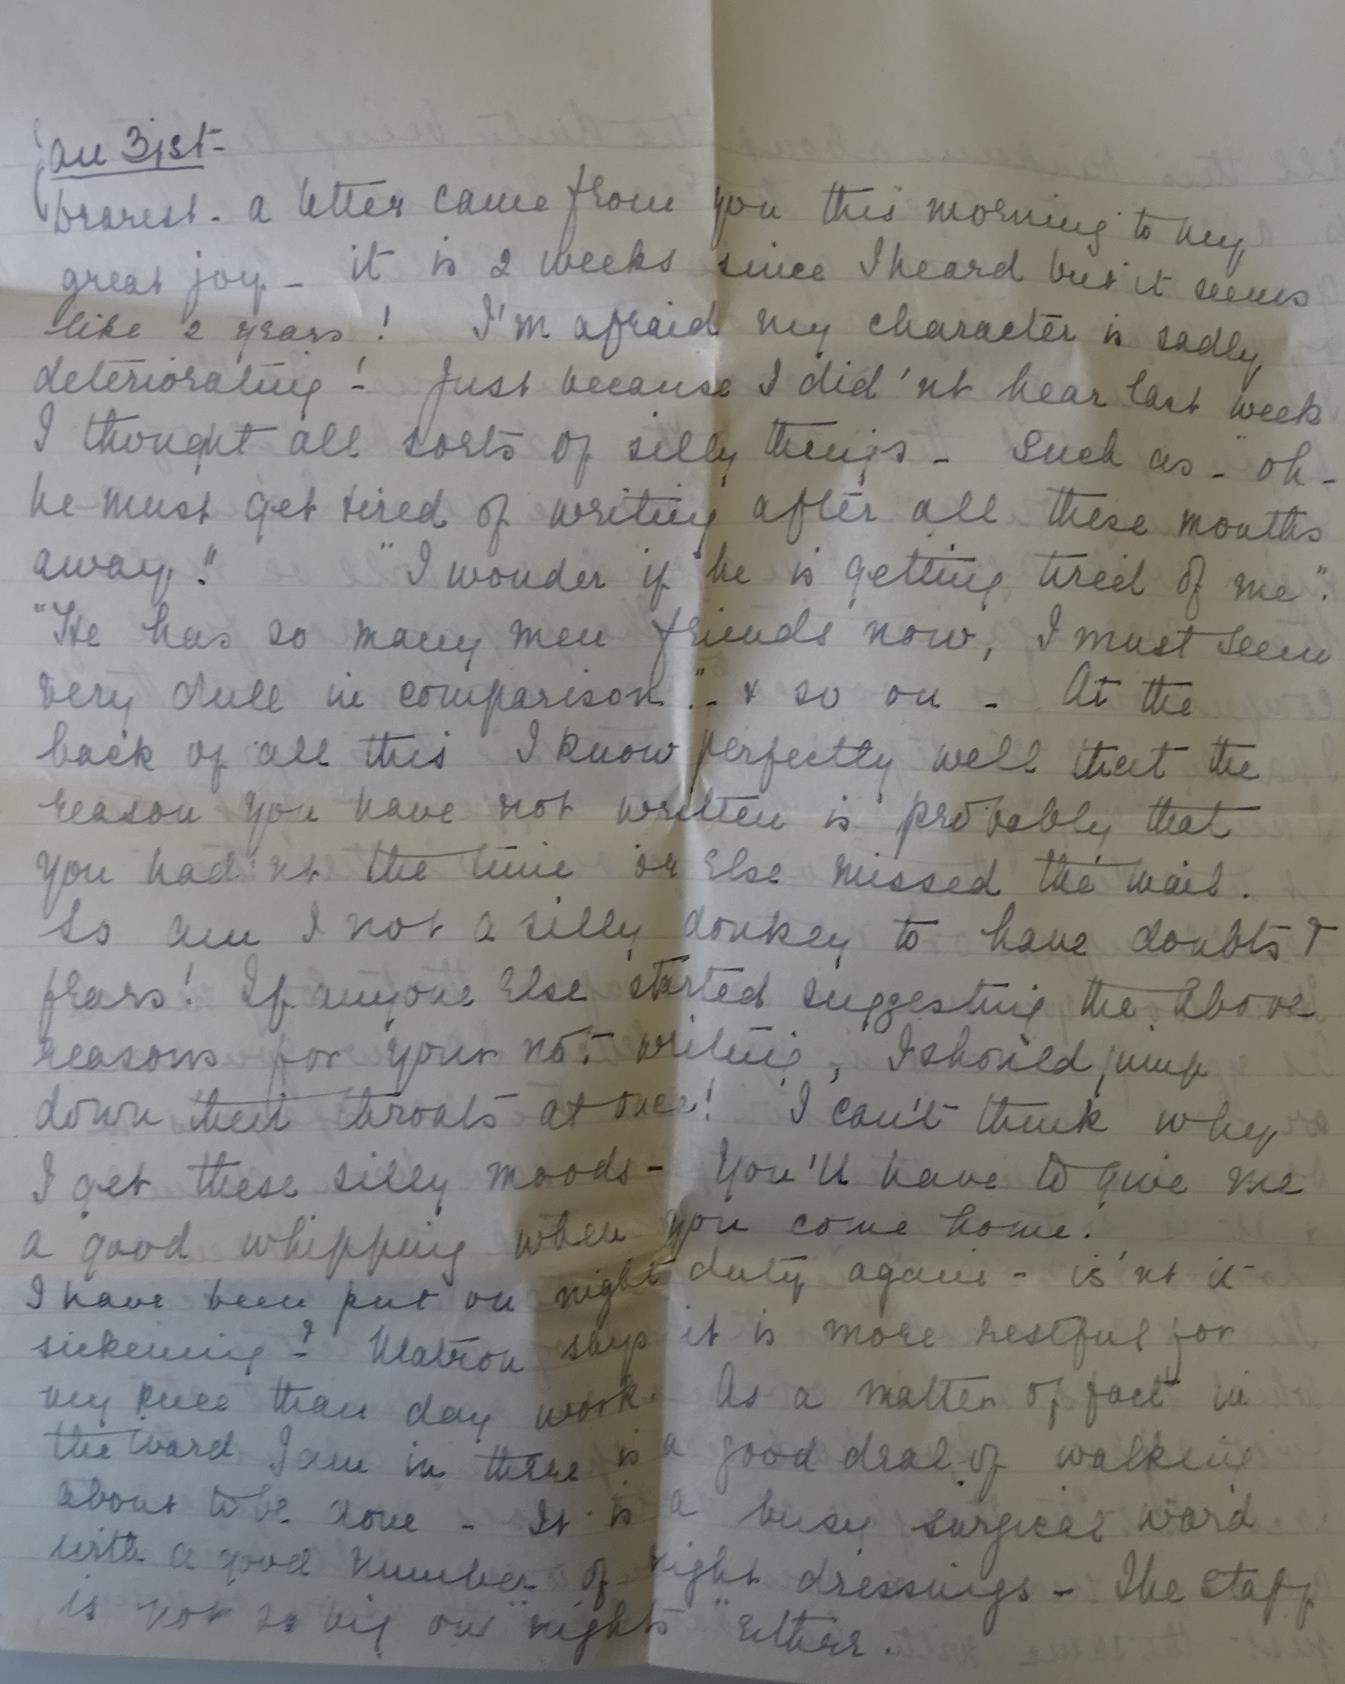 Jan 31st-
Dearest - a letter came from you this morning to my
great joy - it is 2 weeks since I heard but it seems
like 2 years! I'm afraid my character is sadly
deteriorating! Just because I did'nt hear last week
I thought all sorts of silly things - Such as - "oh -
he must get tired of writing after all these months
away." "I wonder if he is getting tired of me".
"He has so many men friends now, I must seem
very dull in comparison" - & so on - At the
back of all this I know perfectly well that the
reason you have not written is probably that
you had'nt the time or else missed the mail.
So am I not a silly donkey to have doubts &
fears! If anyone else started suggesting the above
reasons for your not writing, I should jump
down their throats at once! I can't think why
I get these silly moods - You'll have to give me
a good whipping when you come home.
I have been put on night duty again - is'nt it
sickening -? Matron says it is more restful for
my knee than day work. As a matter of fact in
the ward I am in there is a good deal of walking
about to be done - It is a busy surgical ward
with a good number of night dressings - The staff
is not so big on "nights" either.